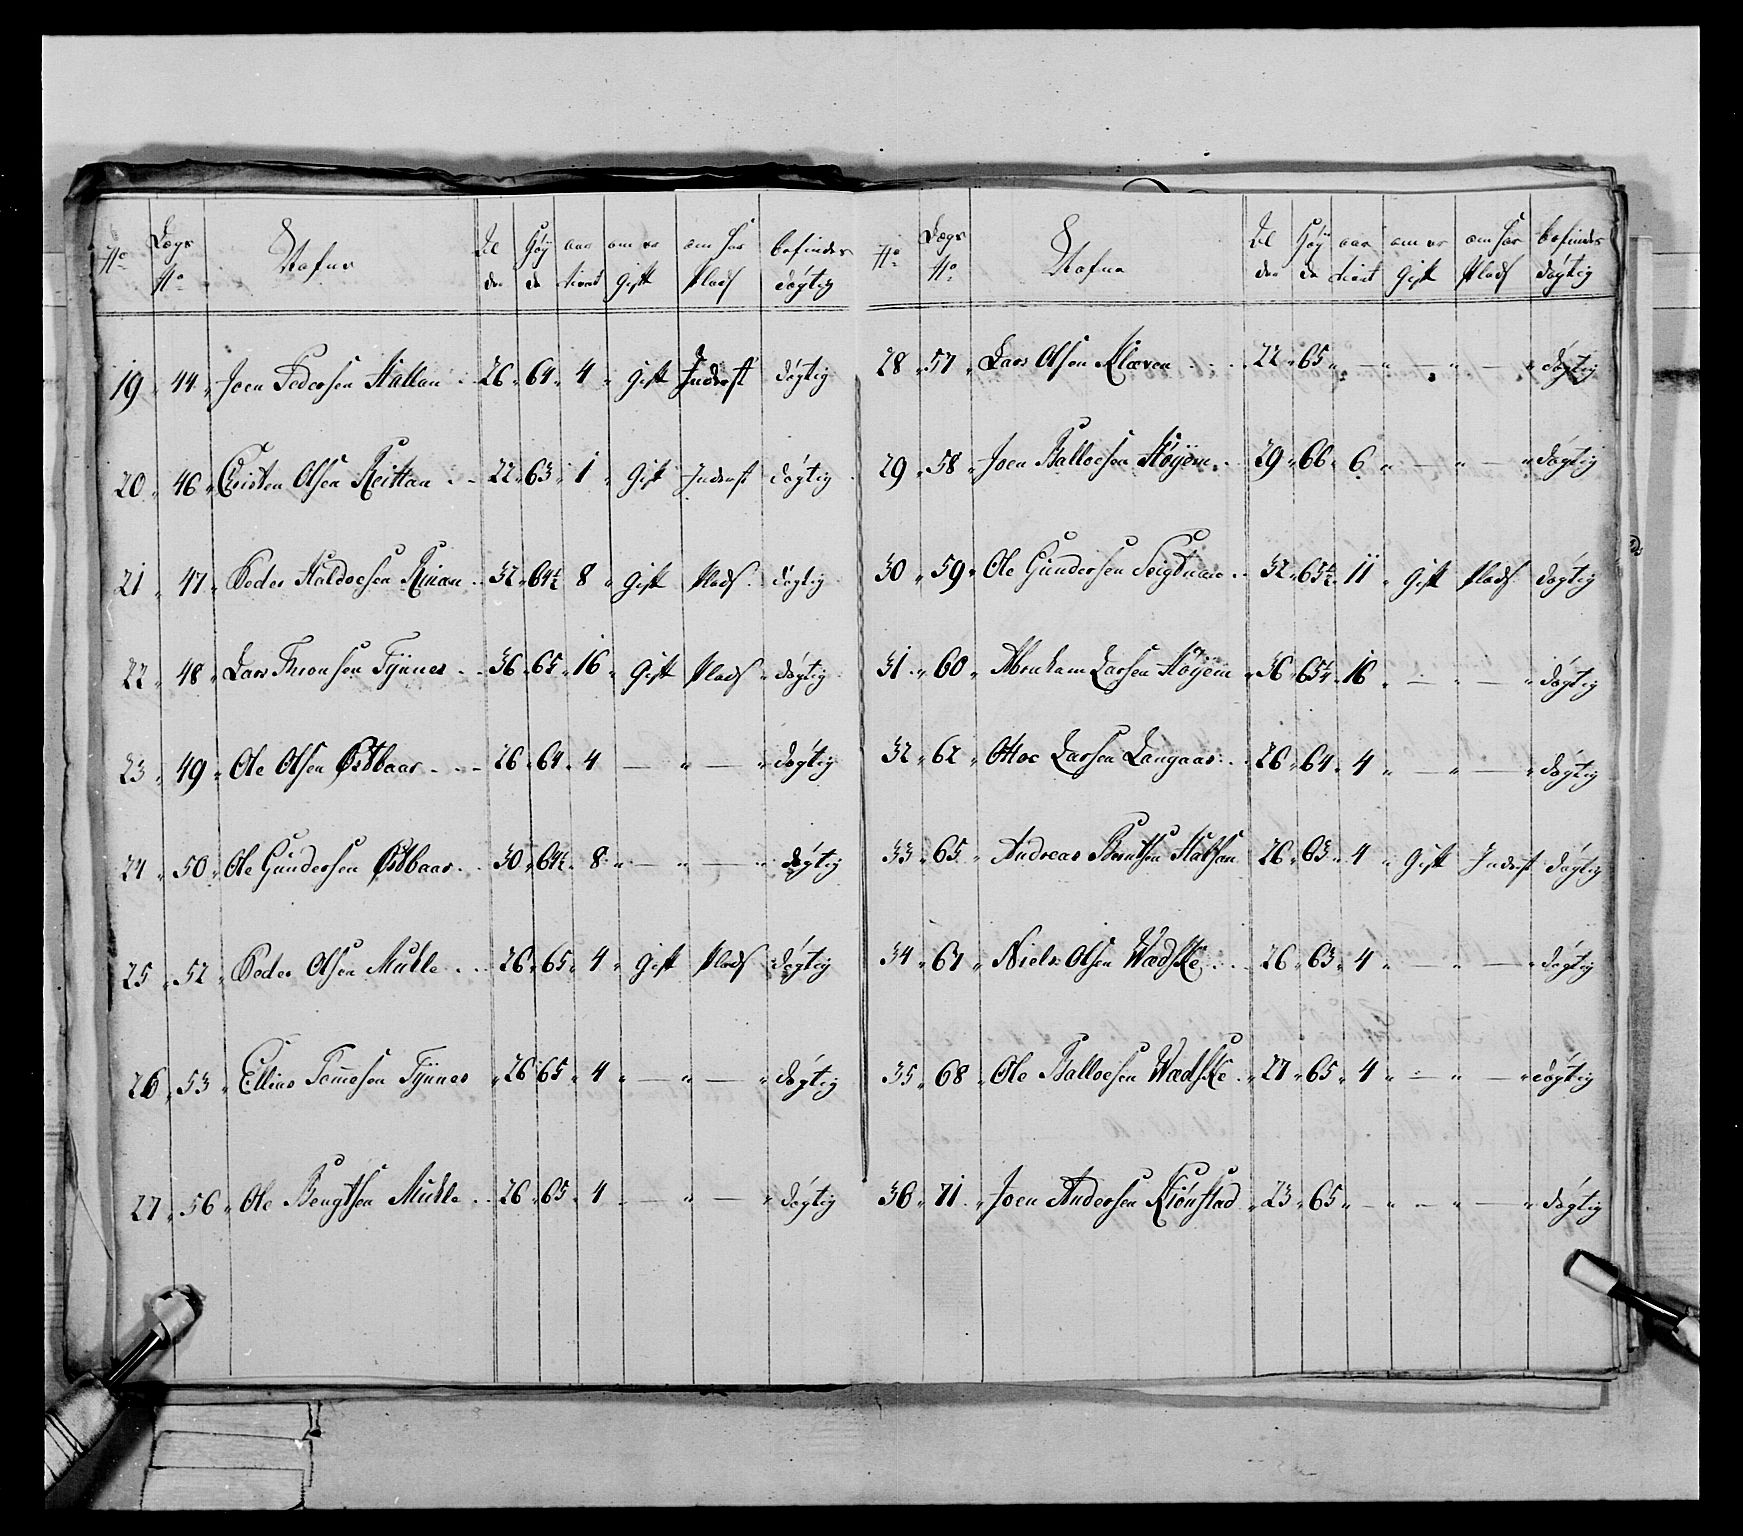 No Lægs No Nafne Al der Høy de aar tient om er Gift om har Plads befindes dögtig
19 44 Joen Pedersen Hallan 26 64 4 Gift Inderst dögtig
20 46 Christen Olsen Reittan 22 63 1 Gift Inderst dögtig
21 47 Peder Haldoesen Rinan 32 64½ 8 Gift Plads dögtig
22 48 Lars Thronsen Tÿnnes 36 65 16 Gift Plads dögtig
23 49 Ole Olsen Østbaar 26 64 4 — " — " dögtig
24 50 Ole Gundersen Østbaar 30 64½ 8 " — " — " dögtig
25 52 Peder Olsen Mulle 26 65 4 Gift Plads dögtig
26 53 Ellius Tomesen Tÿnnes 26 65 4 " — " — " dögtig
27 56 Ole Bengtsen Muhle 26 65 4 " — " — " dögtig
No Lægs No Nafne Al der Høy de aar tient om er Gift om har Plads befindes dögtig
28 57 Lars Olsen Klæven 22 65 " — " — " — " dögtig
29 58 Joen Balloesen Høÿem 29 66 6 " — " — " dögtig
30 59 Ole Gundersen 32 65½ 11 Gift Plads dögtig
31 60 Abraham Larsen Høÿem 36 65½ 16 " — " — " dögtig
32 62 Ottoe Larsen Langaas 26 64 4 " — " — " dögtig
33 65 Andreas Berntsen Halsan 26 63 4 Gift Inderst dögtig
34 67 Niels Olsen Wædske 26 63 4 " — " — " dögtig
35 68 Ole Balloesen Wædske 27 65 4 " — " — " dögtig
36 71 Joen Andersen Kiönstad 23 65 " — " — " — " dögtig